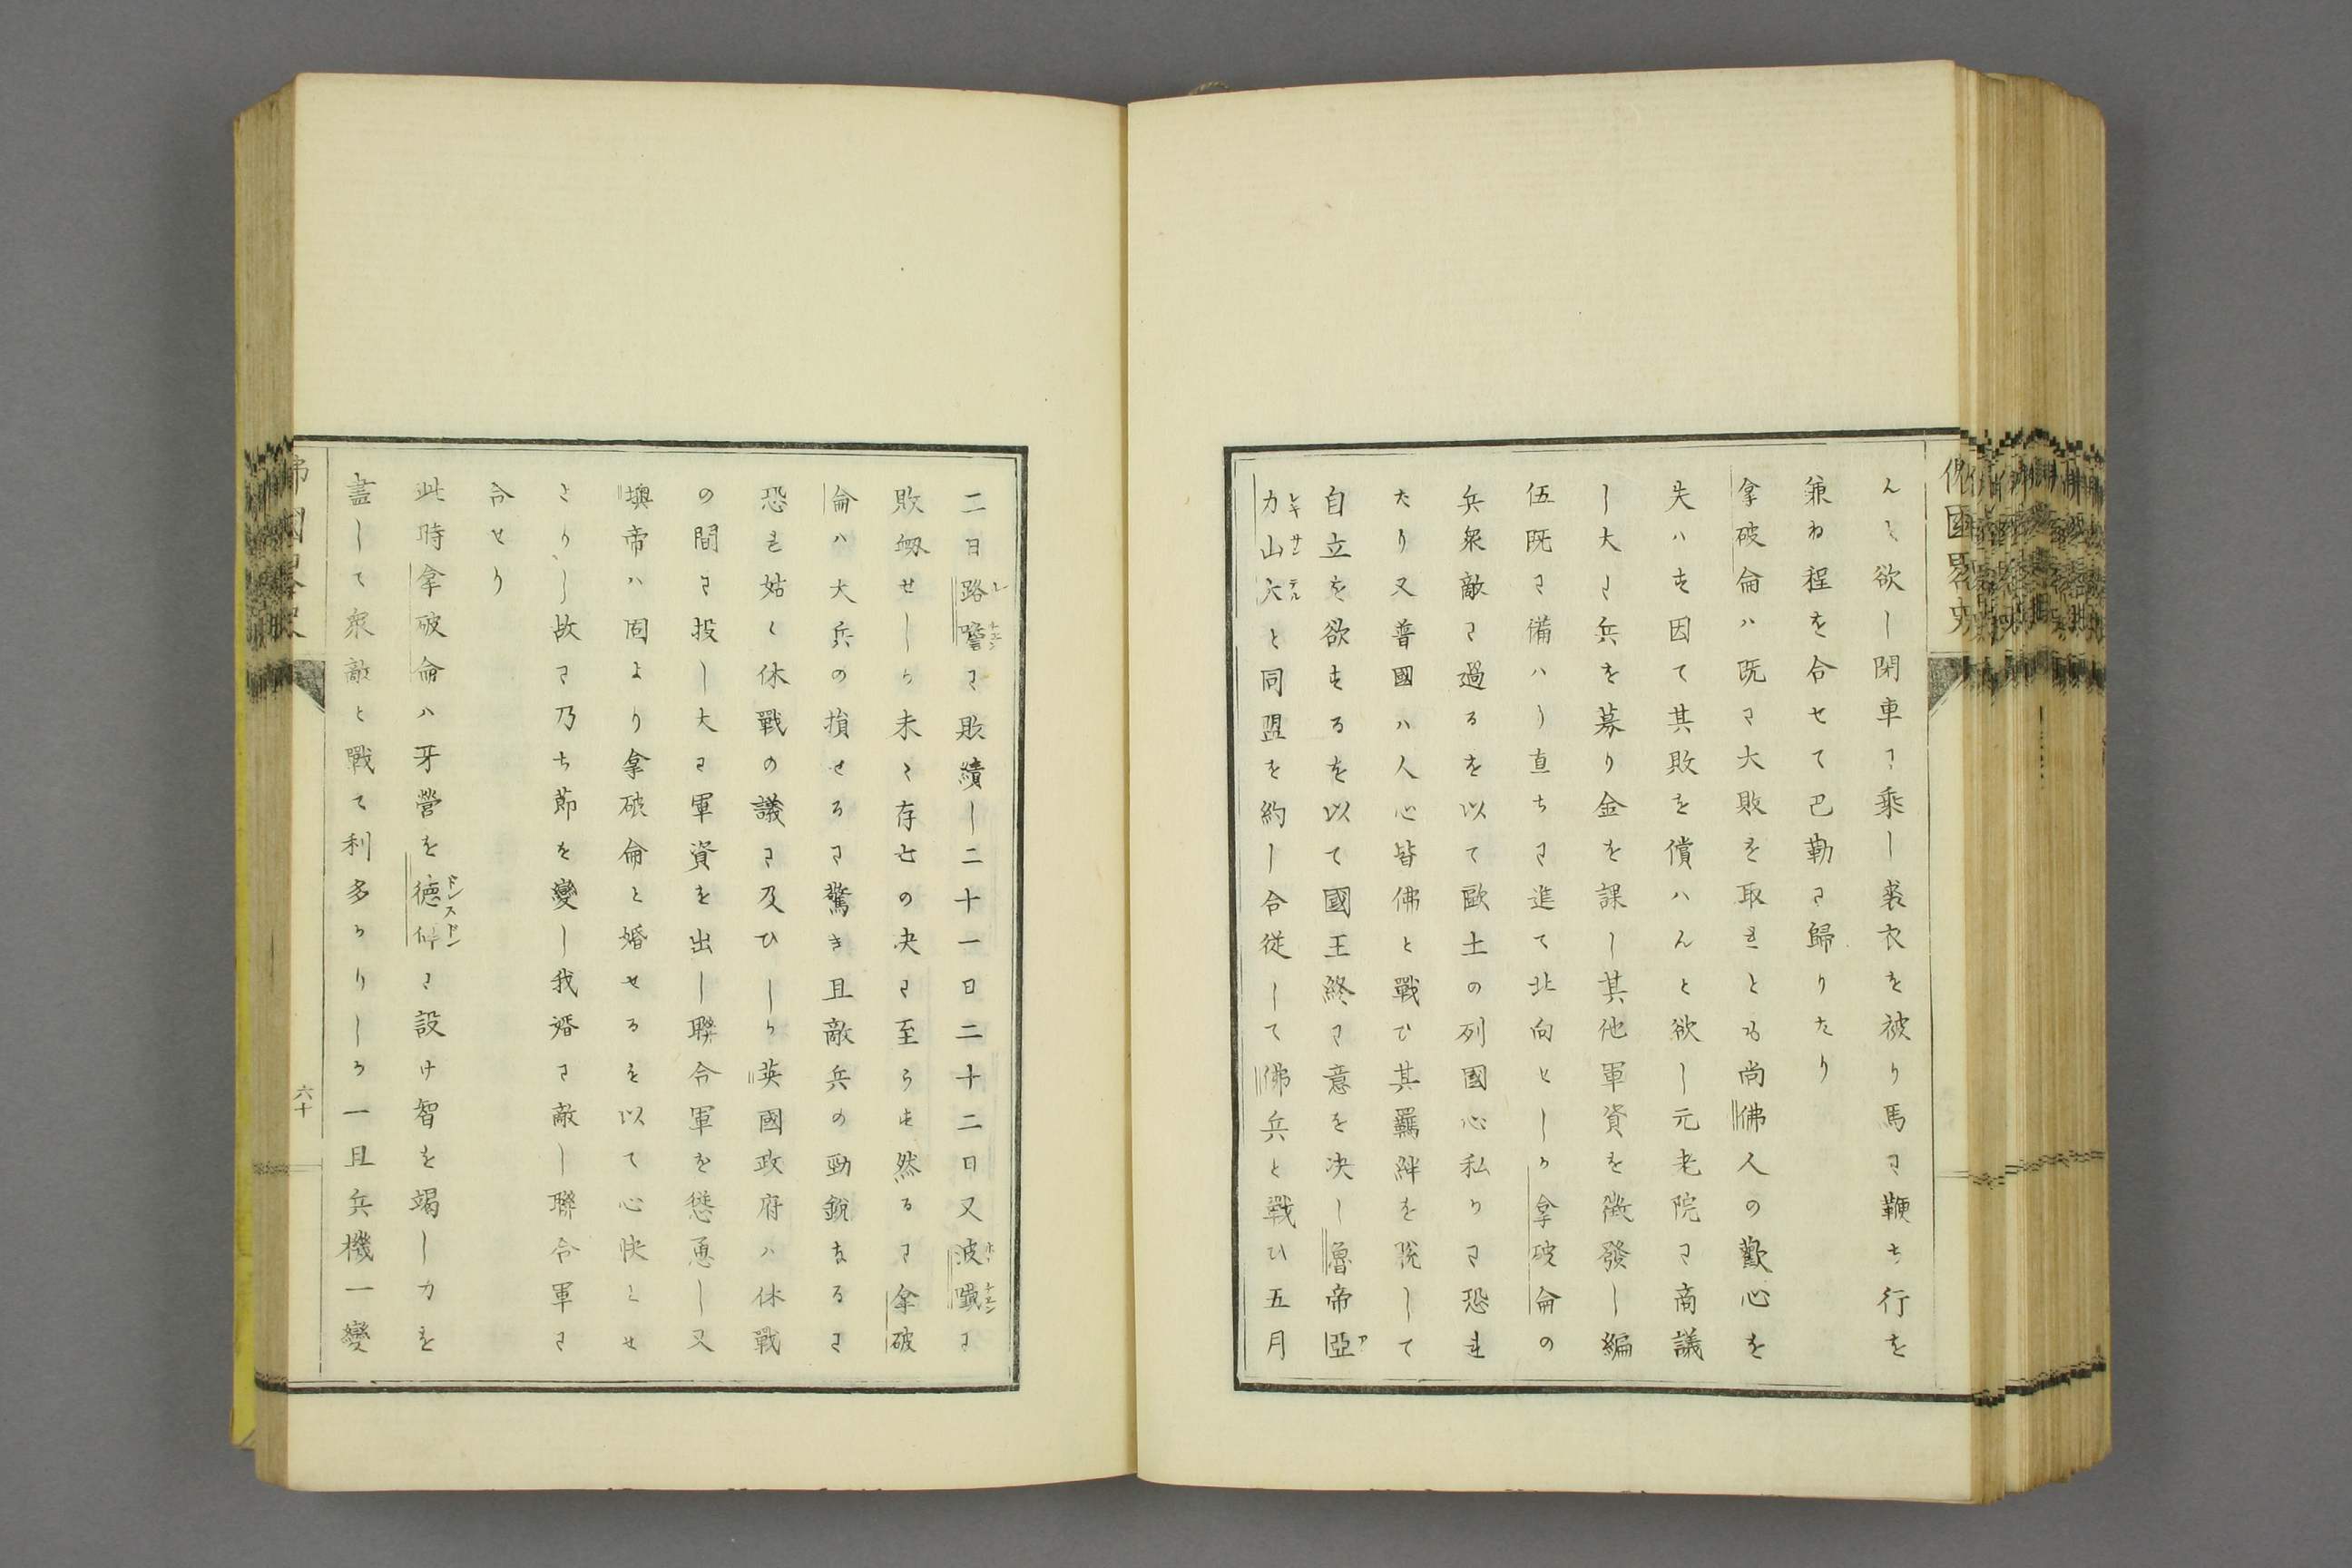 んと欲し閑車に乘し裘衣を被り馬に鞭ち行を
兼ね程を合せて巴勒に歸りたり
拿破侖ハ既に大敗を取れとも尚佛人の歡心を
失ハす因て其敗を償ハんと欲し元老院に商議
し大に兵を募り金を課し其他軍資を徴發し編
伍既に備ハり直ちに進て北向としか拿破侖の
兵衆敵に過るを以て歐土の列國心私かに恐れ
たり又普國ハ人心皆佛と戰ひ其羈絆を脱して
自立を欲するを以て國王終に意を决し魯帝亞ア
力レキ山サン大テルと同盟を約し合從して佛兵と戰ひ五月
二日路レに敗績し二十一日二十二日又波に
敗衂せしか未た存亡の决に至らす然るに拿破
侖ハ大兵の損せるに驚き且敵兵の勁銳なるに
恐れ姑く休戰の議に及ひしか英國政府ハ休戰
の間に投し大に軍資を出し聯合軍を慫慂し又
墺帝ハ固より拿破侖と婚せるを以て心快とせ
さりし故に乃ち節を變し我婿に敵し聯合軍に
合せり
此時拿破侖ハ牙營を德に設け智を竭し力を
盡して衆敵と戰て利多かりしか一旦兵機一變
佛國畧史
六十